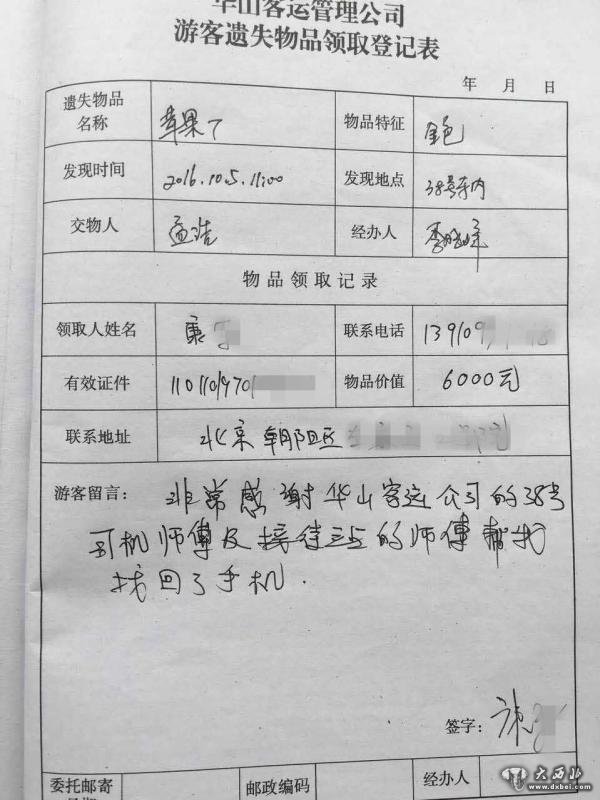 华山客运管理公司
游客遗失物品领取登记表
年 月 日
遗失物品名称 苹果7 物品特征 金色
发现时间 2016.10.5.11:00 发现地点 38号车内
交物人 孟浩 经办人 李晓峰
物品领取记录
领取人姓名 康 联系电话 139109
有效证件 1101101970 物品价值 6000元
联系地址 北京朝阳区
游客留言: 非常感谢华山客运公司的38号
司机师傅及接待三点的师傅帮我
找回了手机.
签字:
委托邮寄 邮政编码 经办人
大西北
www.dxbei.com